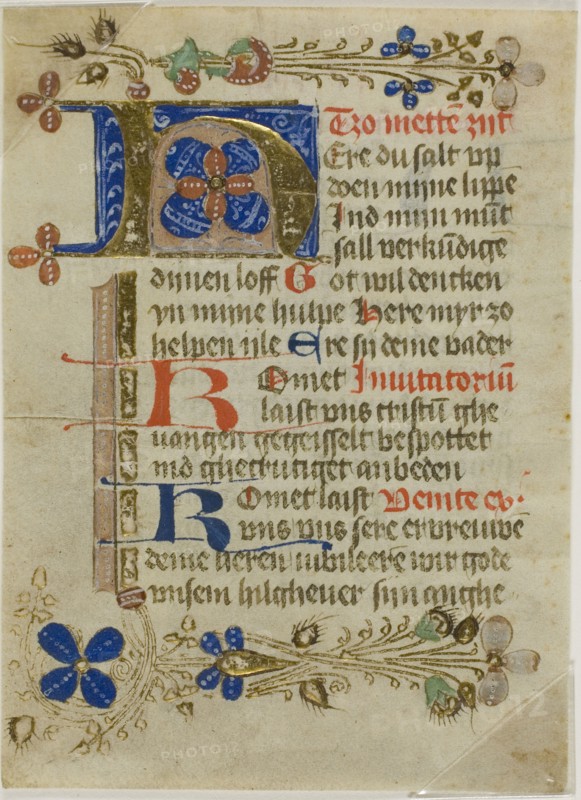 Tzo mettē zijt
HEre du salt vp
doen mijne lippe
Ind mijn mūt
sall verkūdige
dijnen loff Got wil dencken
yn mijne hulpe Here myr zo
helpen ijle Ere sy deme vader
Komet Inuitatoriū
laist vns cristū ghe
uangen gegeisselt bespottet
ind ghecrutiget anbeden
Komet laist Venite ex·
vns vns sere ervreuwē
deme heren iubileere wir gode
vnsem hilgheuer sijn anghe